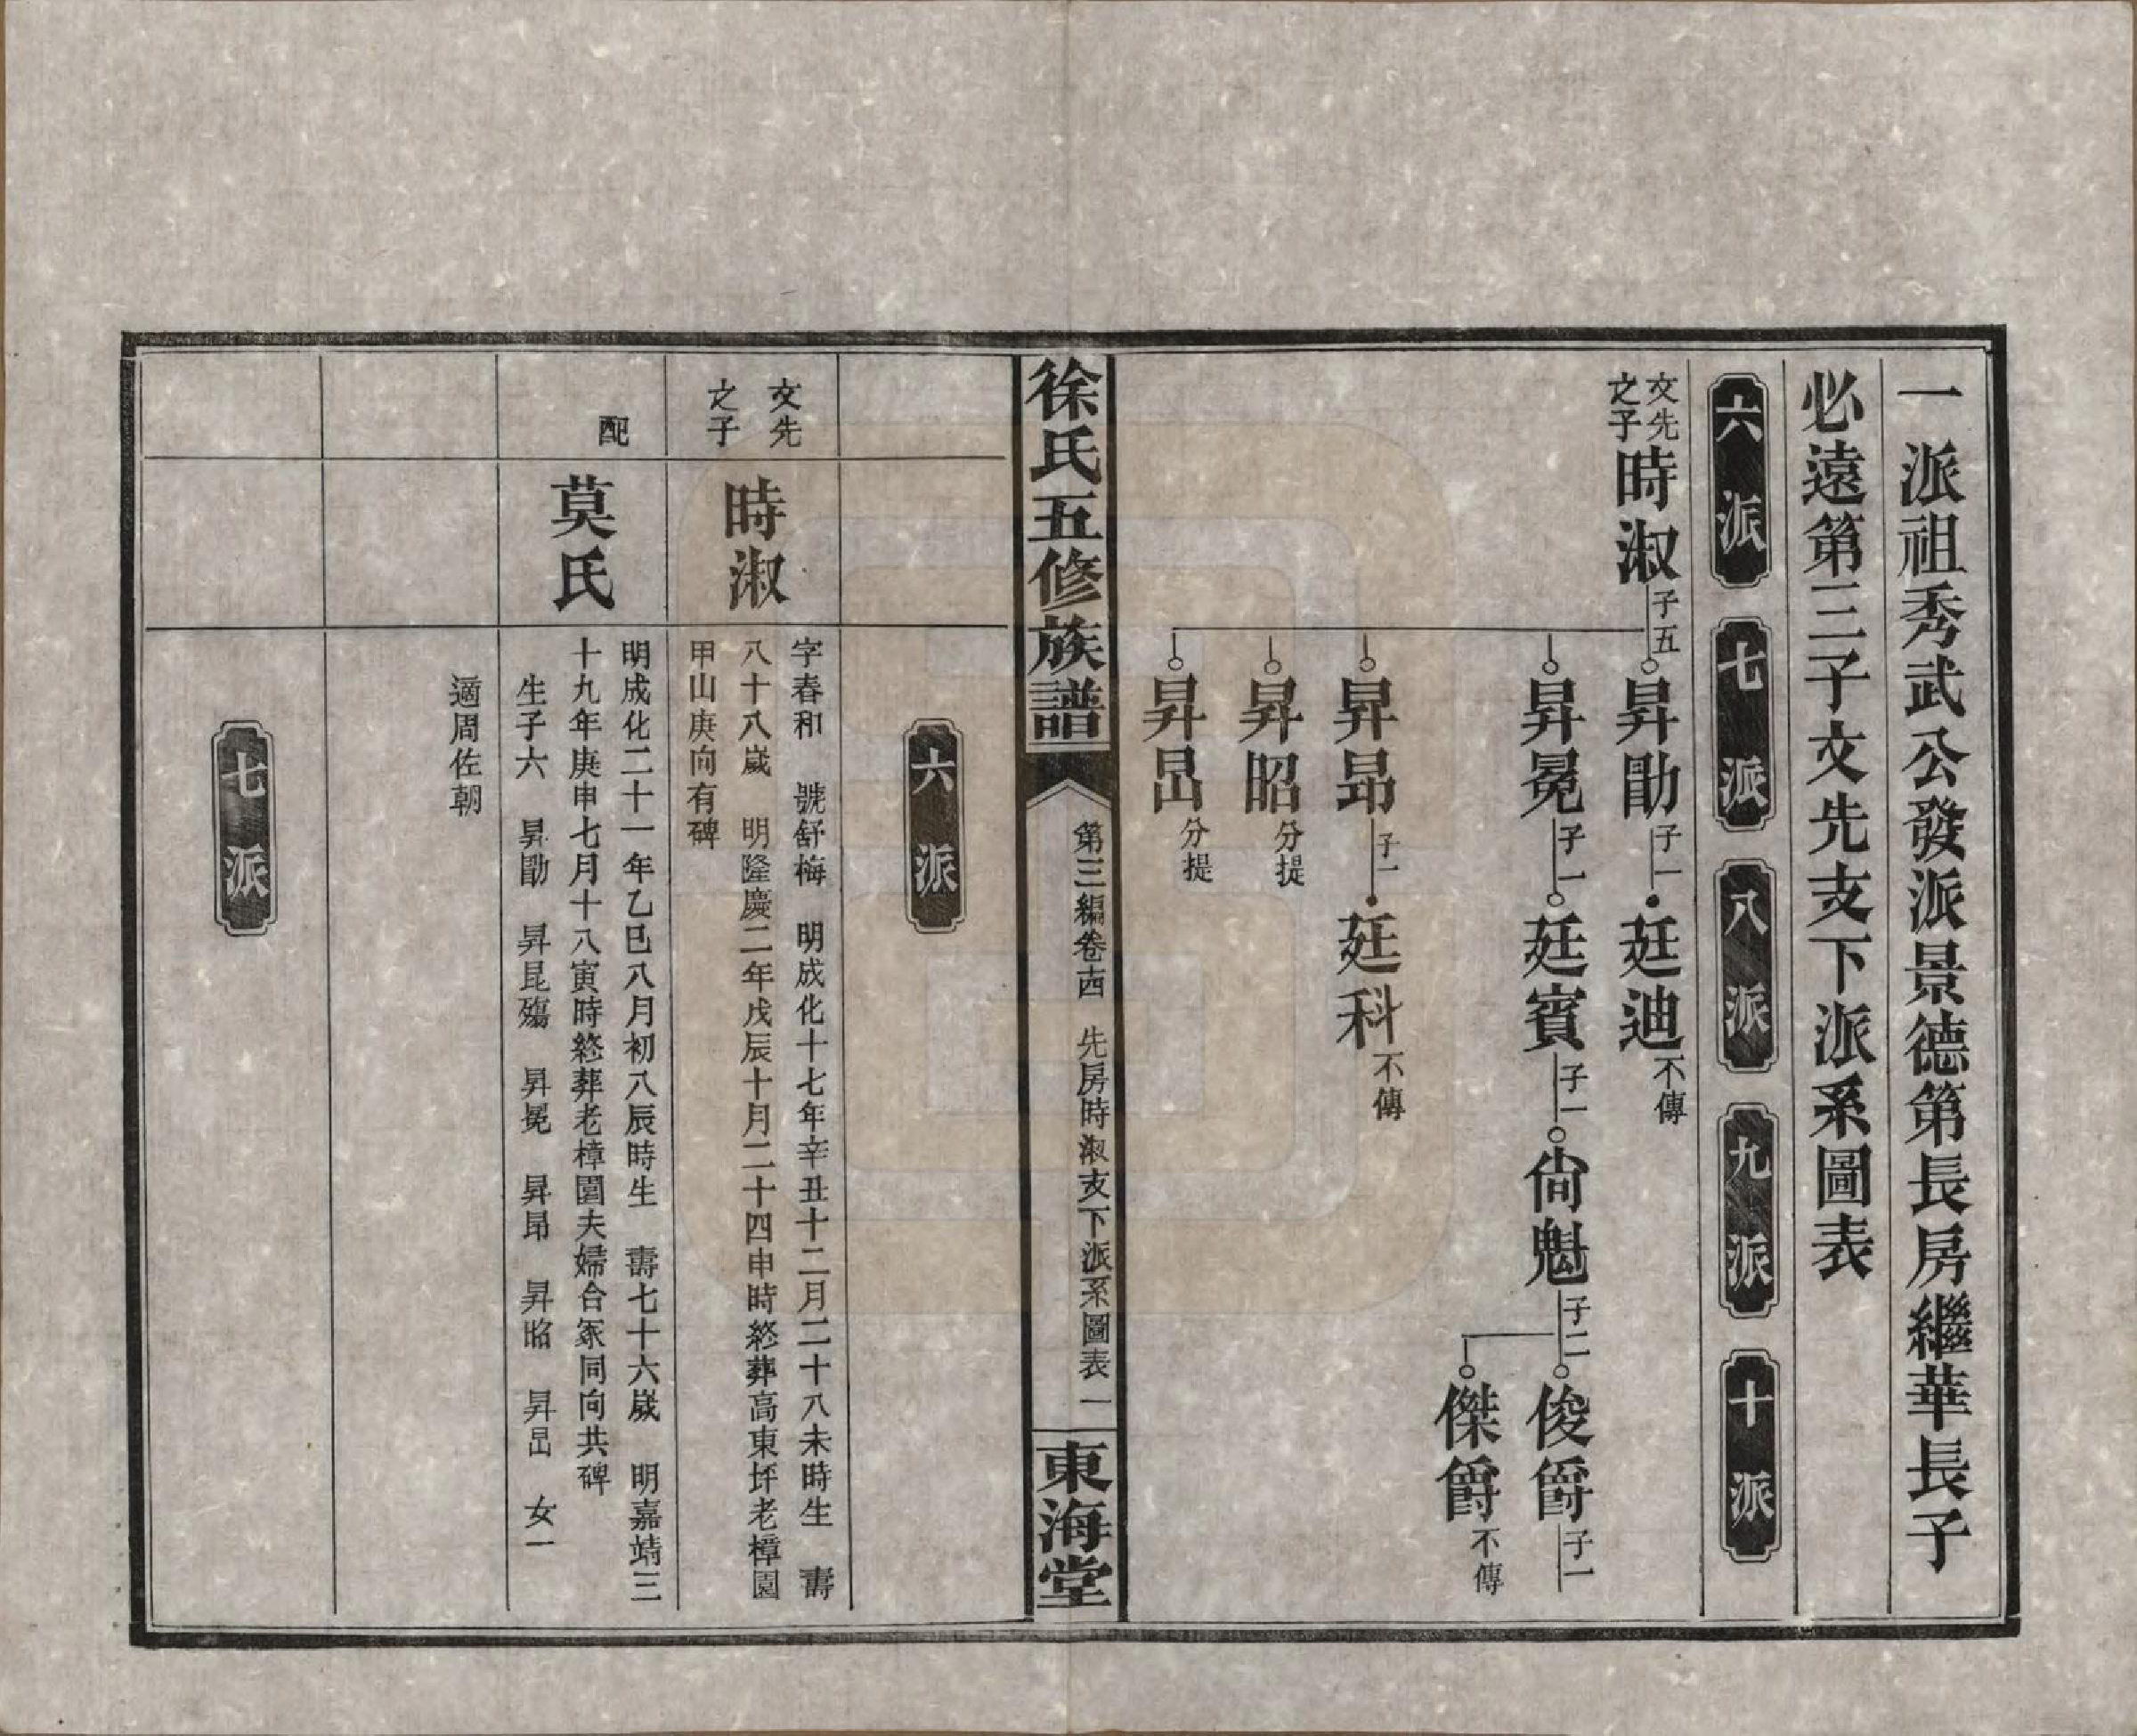 一派祖秀武公發派景德第長房繼華長子
必遠第三子文先支下派系圖表
六派
七派
八派
九派
十派
文先
之子
時淑
子五
昇勖
子一
廷迪
不傳
昇冕
子一
廷賓
子一
尙魁
子二
俊爵
子一
傑爵
不傳
昇昂
子一
廷科
不傳
昇昭
分提
昇昌
分提
徐氏五修族譜
第三編卷十四
先房時淑支下派系圖表
一
東海堂
六派
文先
之子
時淑
字春和 號舒梅 明成化十七年辛丑十二月二十八未時生 壽
八十八歲 明隆慶二年戊辰十月二十四申時終葬高東坪老樟園
甲山庚向有碑
配
莫氏
明成化二十一年乙巳八月初八辰時生 壽七十六歲 明嘉靖三
十九年庚申七月十八寅時終葬老樟園夫婦合冢同向共碑
生子六 昇勖 昇昆殤 昇冕 昇昂 昇昭 昇昌 女一
適周佐朝
七派